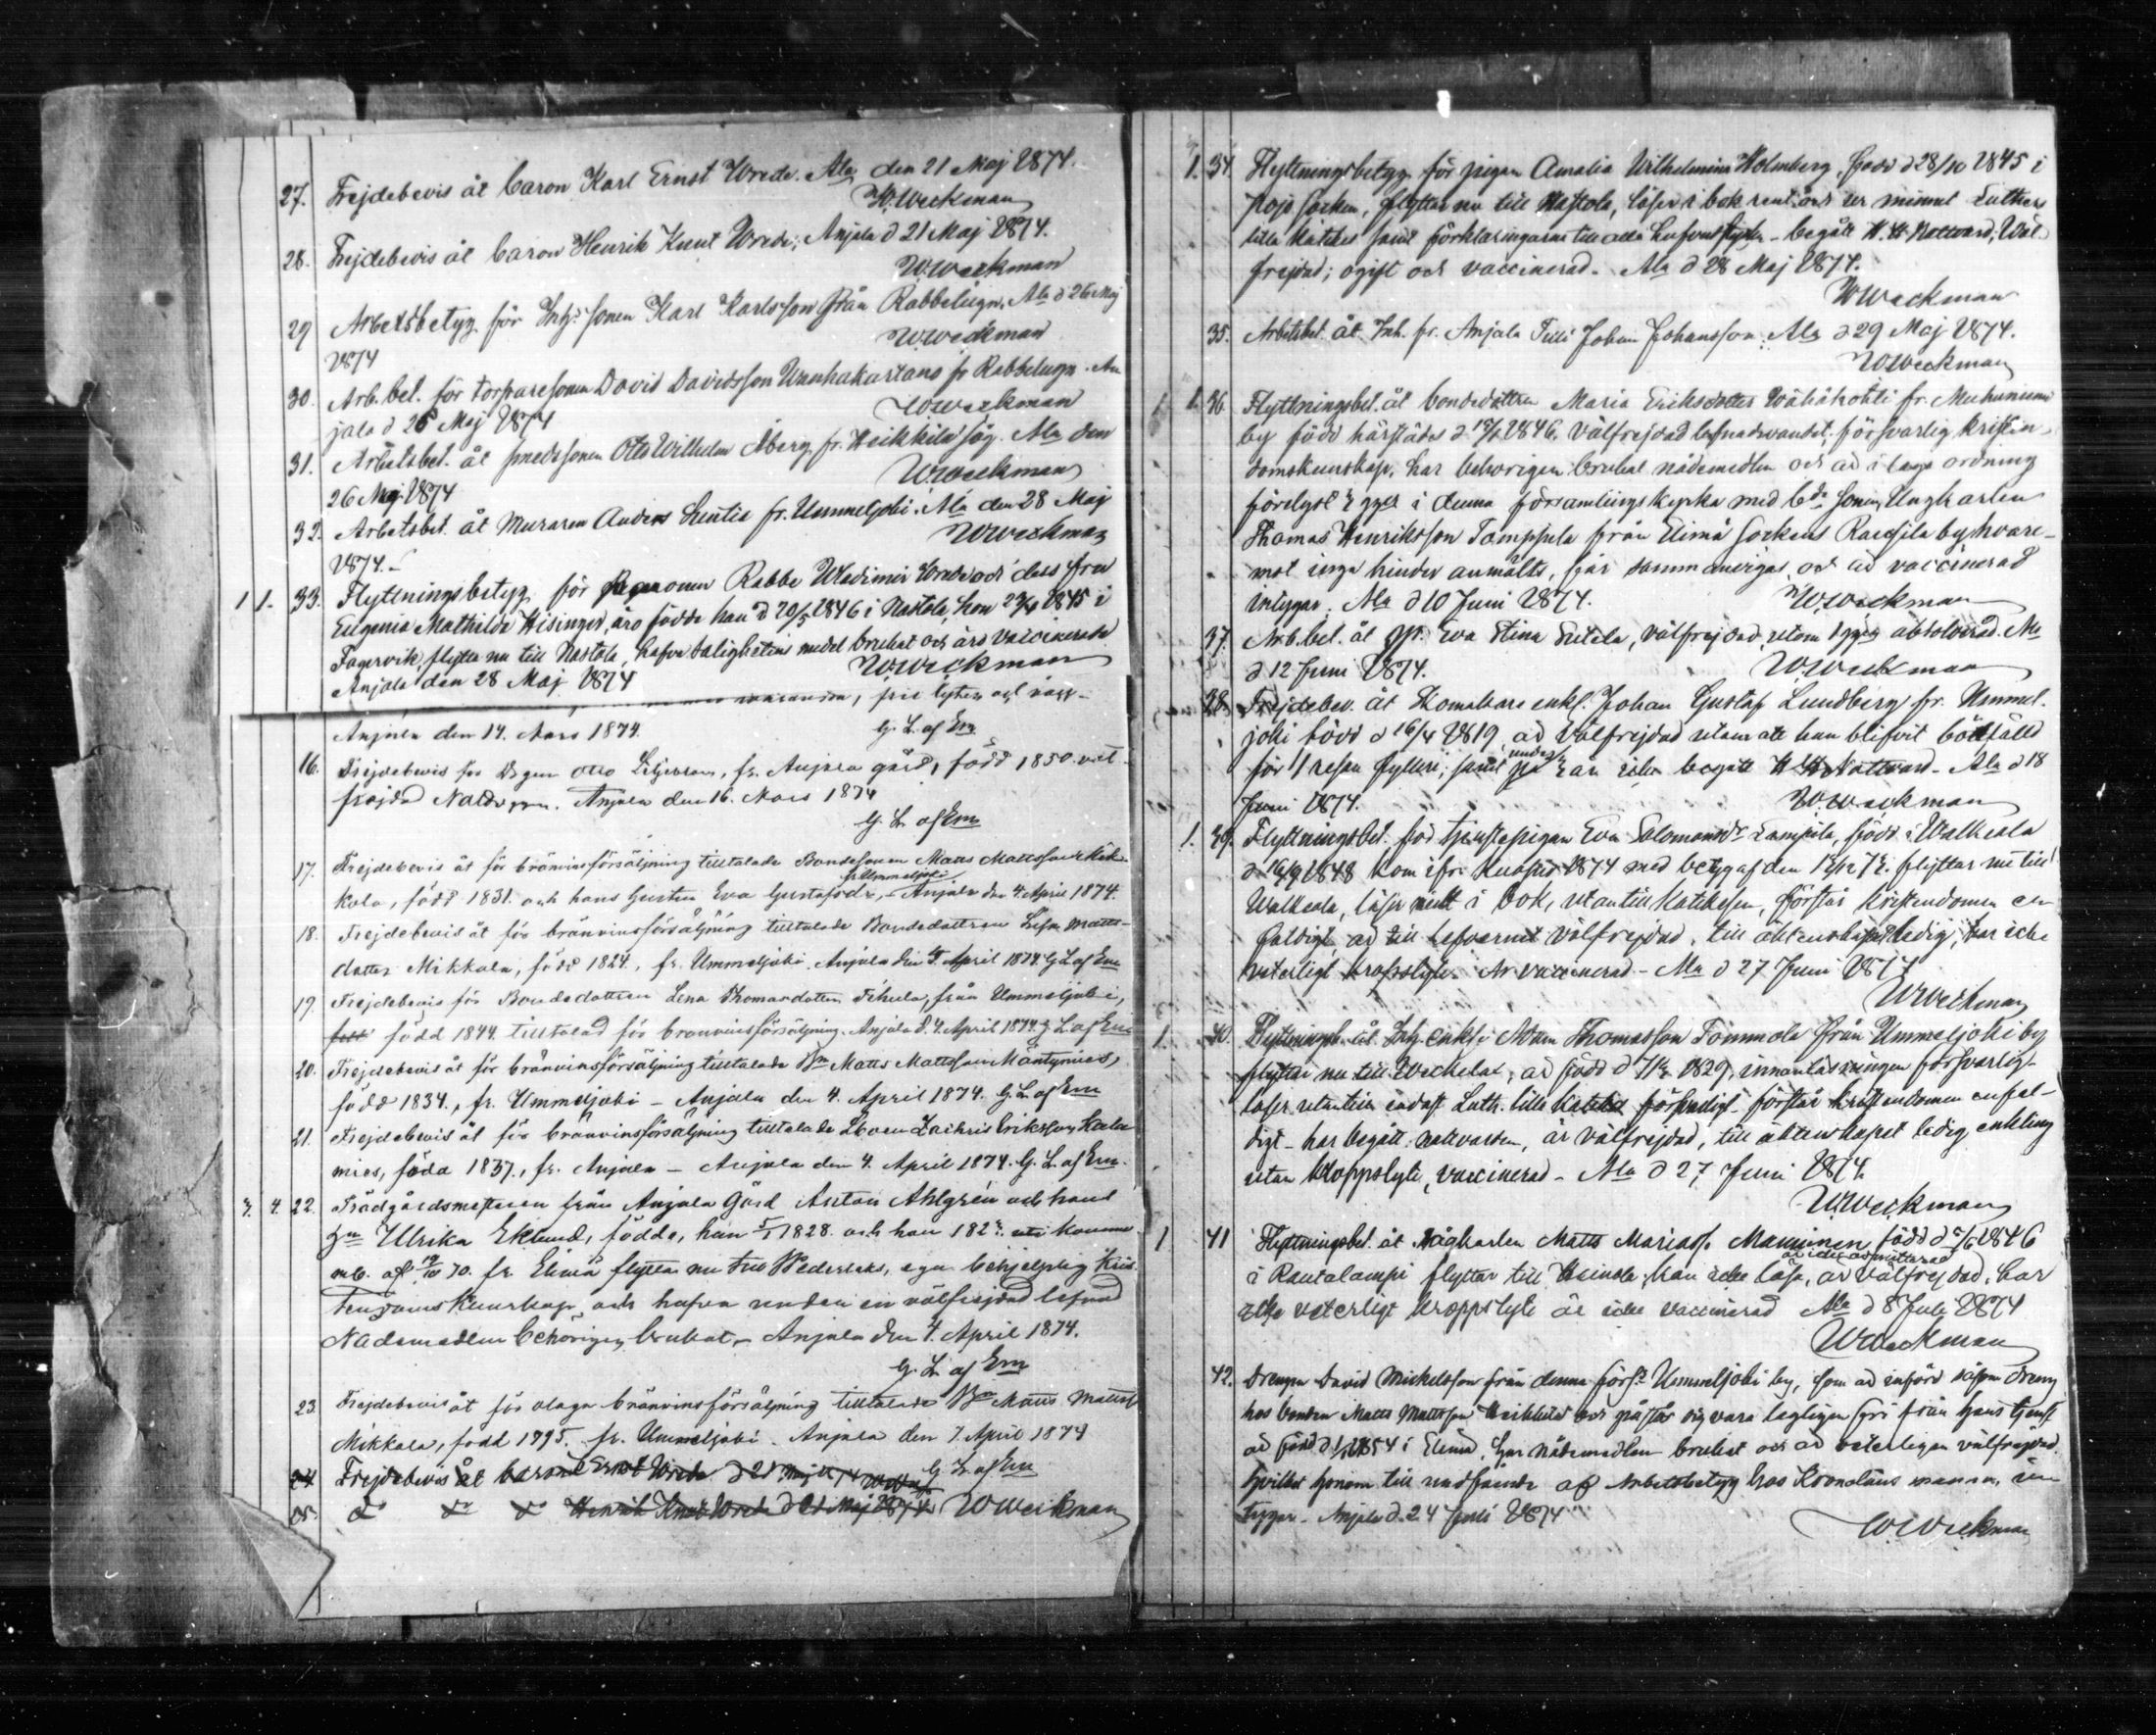 27. Frejdebevis åt baron Karl Ernst Wrede. Ala den 21 Maj 1874.
W.Weckman
28. Frejdebevis åt baron Henrik Knut Wrede, Anjala d 21 Maj 1874.
W.Weckman
29 Arbetsbetyg för Inh: sonen Karl Karlsson från Rabbelugn. Ala d 26 Maj
1874 W.Weckman
30. Arb. bet. för torparesonen David Davidsson Wanhakartano fr Rabbelugn. An
jala d 26 Maj 1874 W.Weckman
31. Arbetsbet. åt smedssonen Otto Wilhelm Åberg fr. Heikkilä såg. Ala den
26 Maj 1874 W.Weckman
32. Arbetsbet. åt Muraren Anders Sentie fr. Ummeljoki. Ala den 28 Maj
1874. W.Weckman
1 1. 33. Flyttningsbetyg för Rabbe Wladimir Wrede och dess fru
Eugenia Mathilda Hisinger, äro födde han d 20/5 1846 i Nastola, hon 1845 i
Fagervik, flytta nu till Nastola, hafva salighetens medel brukat och äro vaccinerade
Anjala den 28 Maj 1874 W.Weckman
Anjala den 14. Mars 1874. G. L. af Em
16. Frejdebevis för Drgen Otto fr. Anjala gård, född 1850. väl
frejdad Anjala den 16. Mars 1874
G. L. af Em
17. Frejdebevis åt för bränvinsförsäljning tilltalade Bondesonen Matts Mattsson Kek
fr. Ummeljoki
kola, född 1831. och hans hustru Eva Gustafsdr, - Anjala den 4. April 1874.
18. Frejdebevis åt för bränvinsförsäljning tilltalade Bondedottren Lisa Matts-
dotter Mikkala, född 1824, fr. Ummeljoki. Anjala den 4. April 1874 G L af Em
19. Frejdebevis för Bondedottren Lena Thomasdotter från Ummeljoki,
född 1844. tilltalad för bränvinsförsäljning. Anjala d. 4. April 1874. G. L. af Em
20. Frejdebevis åt för bränvinsförsäljning tilltalade Bn Matts Mattsson Mäntymies,
född 1834., fr. Ummeljoki - Anjala den 4. April 1874. G. L. af Em
21. Frejdebevis åt för bränvinsförsäljning tilltalade Zachris Eriksson
mies, född 1837., fr. Anjala - Anjala den 4. April 1874. G. L. af Em.
4. 22. Trädgårdsmästaren från Anjala Gård Anton Ahlgrén och hans
Ulrika Eklund, födde, han 1828. och hon komme
af 70. fr. Elimä flytta nu till Wederlaks, ega behjelplig Kris
tendomskunskap, och hafva under en välfrejdad lefnad
Nådemedlen behörigen brukat, - Anjala den 4. April 1874.
G. L. af Em
23 Frejdebevis åt för olaga bränvinsförsäljning tilltalade Bn Matts Matts
Mikkala, född 1795. fr. Ummeljoki. Anjala den 7. April 1874
G. L. af Em
24 Frejdebevis åt baron Ernst Wrede d 21 Maj 1874
25. do do do Henrik Knut Wrede d 21 Maj 1874 W.Weckman
1. 34. Flyttningsbetyg för pigan Amalia Wilhelmina Holmberg, född d 28/10 1845 i
Pojo socken, flyttar nu till Nastola, läser i bok rent och ur minnet Luthers
lilla Kateches samt förklaringarna till alla hufvudstycken - begått H. H. Nattvard; Väl-
frejdad; ogift och vaccinerad. Ala d 28 Maj 1874.
W.Weckman
35. Arbetsbet. åt Inh. fr. Anjala Johan Johansson. Ala d 29 Maj 1874.
W.Weckman
1 1. 36. Flyttningsbet. åt bondedottren Maria Eriksdotter Wähäkohti fr. Muhniemi
by född härstädes d 1846. Välfrejdad lefnadsvandel, försvarlig kristen-
domskunskap, har behörigen brukat nådemedlen och är i laga ordning
förelyst 3 ggr i denna församlings kyrka med bde sonen, Ungkarlen
Thomas Henriksson Tamppula från Elimä sockens Raussila by, hvare-
mot inga hinder anmälts, får sammanvigas och är vaccinerad
intygar. Ala d 10 Juni 1874. W.Weckman
37. Arb. bet. åt Eva Stina välfrejdad, absolverad. Ala
d 12 Juni 1874. W.Weckman
38. Frejdebev. åt Skomakare enkl. Johan Gustaf Lundberg fr. Ummel-
joki född d 16/4 1819, är välfrejdad utom att han blifvit bötfälld
för 1 resan fylleri; samt under år icke begått H. H. Nattvard. Ala d 18
Juni 1874. W.Weckman
1. 39. Flyttningsbet. för tjenstepigan Eva Salomonsdr född i Walkeala
d 1848 kom ifr. 1874 med betyg af den flyttar nu till
Walkeala, läser i bok, utantill Katekesen, förstår kristendomen en
faldigt är till lefvernet välfrejdad, till äktenskapet ledig, har icke
veterligt kroppslyte. Ar vaccinerad - Ala d 27 Juni 1874
W.Weckman
1 40. Flyttningsb. åt Inh. enkl. Adam Thomasson Tommola från Ummeljoki by
flyttar nu till Weckelax, är född d 1829, innanläsningen försvarlig
läser utantill endast Luth. lilla Kateches förstår kristendomen enfal-
digt - har begått nattvarden, är välfrejdad, till äktenskapet ledig enkling
utan kroppslyte, vaccinerad - Ala d 27 Juni 1874.
W.Weckman
1 41 Flyttningsbet. åt Matts Mariass. Manninen född d 1846
är icke admitterad
i Rautalampi flyttar till Heinola, kan icke läsa, är välfrejdad, har
icke veterligt kroppslyte är icke vaccinerad Ala d 8 Juli 1874
W.Weckman
42. Drengen David Michelsson från denna förs:s Ummeljoki by, som är införd såsom dreng
hos bonden Matts Mattsson Heikkilä och påstår sig vara lagligen fri från hans tjenst
är född d 1854 i Elimä, har nådemedlen brukat och är veterligen välfrejdad.
hvilket honom till undfående af Arbetsbetyg hos Kronolänsmannen, in
tygar. Anjala d. 24 Juli 1874
W.Weckman